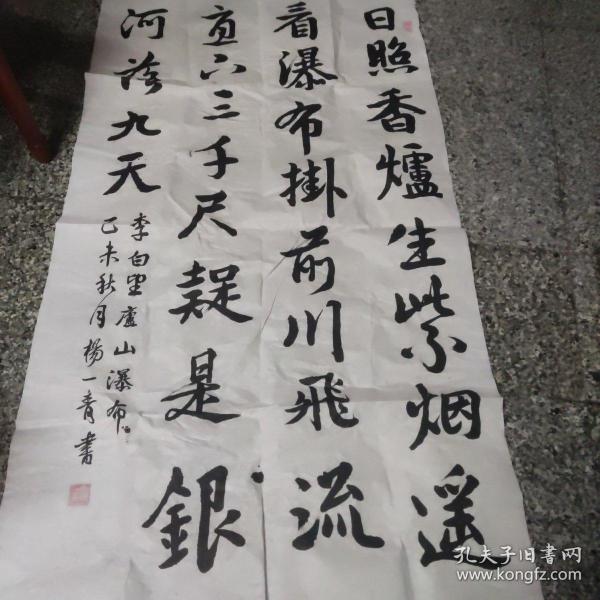 日照香爐生紫烟遥
看瀑布掛前川飛流
直下三千尺疑是銀
河落九天
李白望廬山瀑布
己未秋月楊一青書
孔夫子旧书网
www.kongfz.com